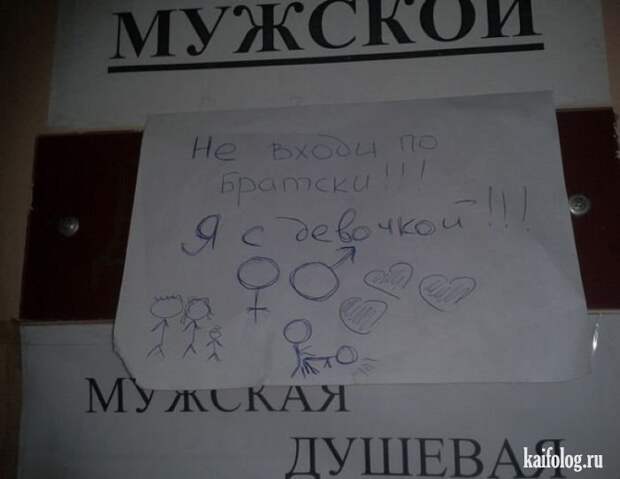 МУЖСКОЙ
Не входи по
братски!!!
Я с девочкой!!!
МУЖСКАЯ
ДУШЕВАЯ
kaifolog.ru